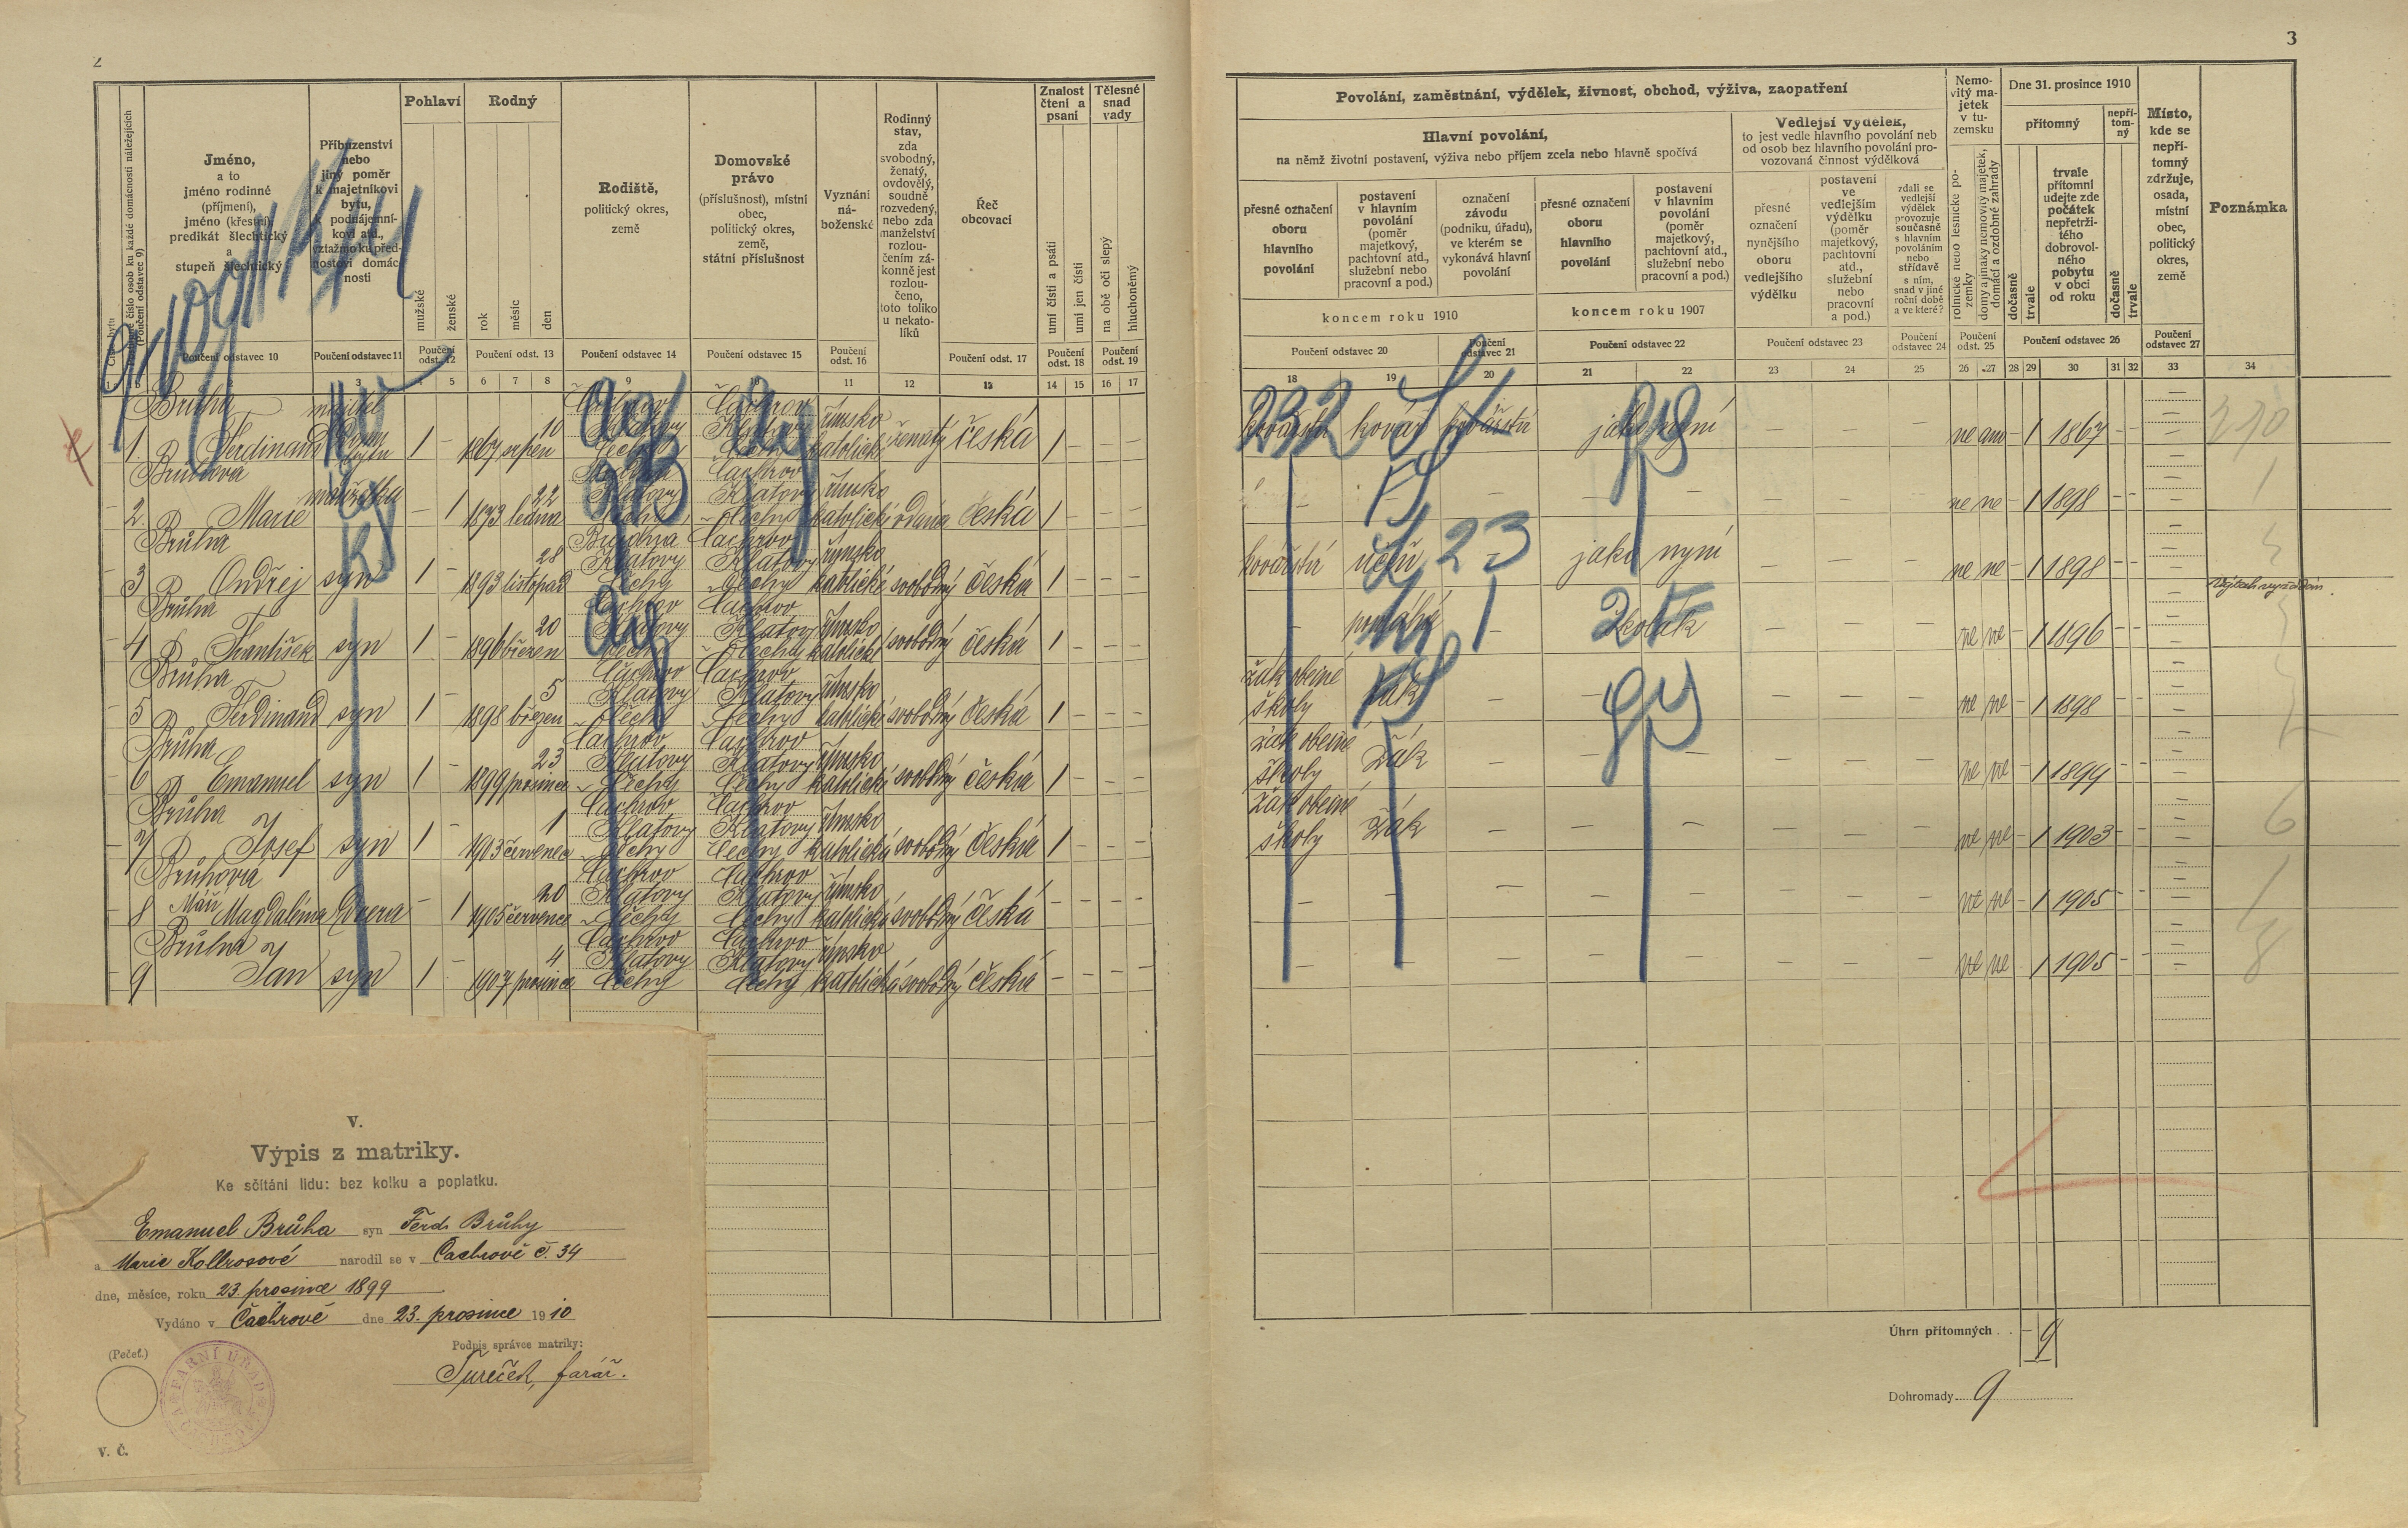 2
3
Pohlaví
Rodný
Znalost čtení a psaní
Tělesné snad vady
Jméno,
a to
jméno rodinné
(příjmení),
jméno (křestní)
predikát šlechtický
a
stupeň šlechtický
Příbuzenství
nebo
jiný poměr
k majetníkovi
bytu,
k podnájemní-
kovi atd.,
vztažmo ku před-
nostovi domác-
nosti
mužské
ženské
rok
měsíc
den
Rodiště,
politický okres,
země
Domovské
právo
(příslušnost), místní
obec,
politický okres,
země,
státní příslušnost
Vyznání
ná-
boženské
Rodinný
stav,
zda
svobodný,
ženatý,
ovdovělý,
soudně
rozvedený,
nebo zda
manželství
rozlou-
čením zá-
konně jest
rozlou-
čeno,
toto toliko
u nekato-
líků
Řeč
obcovací
umí čísti a psáti
umí jen čísti
na obě oči slepý
hluchoněmý
Poučení odstavec 10
Poučení odstavec 11
Poučení odst. 12
Poučení odst. 13
Poučení odstavec 14
Poučení odstavec 15
Poučení odst. 16
Poučení odst. 17
Poučení odst. 18
Poučení odst. 19
3 5 6 7 8 9 10 11 12 13 14 15 16 17
Brůha
1 Ferdinand 1 – 1867 srpen 10 Čachrov Klatovy Čechy Čachrov Klatovy Čechy římsko katolické ženatý česká 1 – – –
Brůhova
2 Marie manželka – 1 1873 ledna 22 Klatovy Čechy Čachrov Klatovy Čechy římsko katolické vdaná česká 1 – – –
Brůha
3 Ondřej syn 1 – 1893 listopad 28 Klatovy Čechy Čachrov Klatovy Čechy římsko katolické svobodný česká 1 – – –
Brůha
4 František syn 1 – 1896 březen 20 Čachrov Klatovy Čechy Čachrov Klatovy Čechy římsko katolické svobodný česká 1 – – –
Brůha
5 Ferdinand syn 1 – 1898 březen 5 Čachrov Klatovy Čechy Čachrov Klatovy Čechy římsko katolické svobodný česká 1 – – –
Brůha
6 Emanuel syn 1 – 1899 prosince 23 Čachrov Klatovy Čechy Čachrov Klatovy Čechy římsko katolické svobodný česká 1 – – –
Brůha
7 Josef syn 1 – 1903 červenec 1 Čachrov Klatovy Čechy Čachrov Klatovy Čechy římsko katolické svobodný česká 1 – – –
Brůhova
8 Magdaléna dcera – 1 1905 července 20 Čachrov Klatovy Čechy Čachrov Klatovy Čechy římsko katolické svobodný česká – – – –
Brůha
9 Jan syn 1 – 1907 prosince 4 Čachrov Klatovy Čechy Čachrov Klatovy Čechy římsko katolické svobodný česká – – – –
V.
Výpis z matriky.
Ke sčítání lidu: bez kolku a poplatku.
Emanuel Brůha syn Ferd. Brůhy
a Marie Kollrosové narodil se v Čachrově č. 34
dne, měsíce, roku 23. prosince 1899
Vydáno v Čachrově dne 23. prosince 1910
Podpis správce matriky:
(Pečeť.)
Tureček, farář.
FARNÍ ÚŘAD
V. Č.
Povolání, zaměstnání, výdělek, živnost, obchod, výživa, zaopatření
Hlavní povolání,
na němž životní postavení, výživa nebo příjem zcela nebo hlavně spočívá
Vedlejší výdělek,
to jest vedle hlavního povolání neb
od osob bez hlavního povolání pro-
vozovaná činnost výdělková
Nemo-
vitý ma-
jetek
v tu-
zemsku
Dne 31. prosince 1910
přítomný
nepří-
tom-
ný
Místo,
kde se
nepří-
tomný
zdržuje,
osada,
místní
obec,
politický
okres,
země
Poznámka
přesné označení
oboru
hlavního
povolání
postavení
v hlavním
povolání
(poměr
majetkový,
pachtovní atd.,
služební nebo
pracovní a pod.)
označení
závodu
(podniku, úřadu),
ve kterém se
vykonává hlavní
povolání
přesné označení
oboru
hlavního
povolání
postavení
v hlavním
povolání
(poměr
majetkový,
pachtovní atd.,
služební nebo
pracovní a pod.)
přesné
označení
nynějšího
oboru
vedlejšího
výdělku
postavení
ve
vedlejším
výdělku
(poměr
majetkový,
pachtovní
atd.,
služební
nebo
pracovní
a pod.)
zdali se
vedlejší
výdělek
provozuje
současně
s hlavním
povoláním
nebo
střídavě
s ním,
snad v jiné
roční době
a ve které?
rolnické nebo lesnické po-
zemky
domy a jinaký nemovitý majetek,
domácí a ozdobné zahrady
dočasně
trvale
trvale
přítomní
udejte zde
počátek
nepřetrži-
tého
dobrovol-
ného
pobytu
v obci
od roku
dočasně
trvale
koncem roku 1910
koncem roku 1907
Poučení odstavec 20
Poučení odstavec 21
Poučení odstavec 22
Poučení odstavec 23
Poučení odstavec 24
Poučení odst. 25
Poučení odstavec 26
Poučení odstavec 27
18 19 20 21 22 23 24 25 26 27 28 29 30 31 32 33 34
232
kovářství kovář kovářství jako nyní – – – ne ano – 1 1867 – – –
– – – – – – – ne ne – 1 1898 – – –
kovářství učeň 23 jako nyní – – – ne ne – 1 1898 – – –
– – školák – – – ne ne – 1 1896 – – –
žák obecné školy žák – – – – – – ne ne – 1 1898 – – –
žák obecné školy žák – – – – – – ne ne – 1 1899 – – –
žák obecné školy žák – – – – – – ne ne – 1 1903 – – –
– – – – – – – – ne ne – 1 1905 – – –
– – – – – – – – ne ne – 1 1905 – – –
Úhrn přítomných . . – 9
Dohromady 9